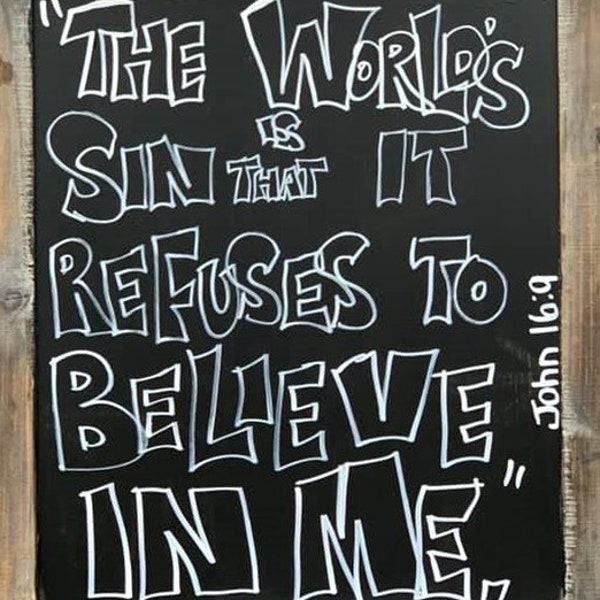 "THE WORLD'S
SIN IS THAT IT
REFUSES TO
BELIEVE
IN ME."
John 16:9